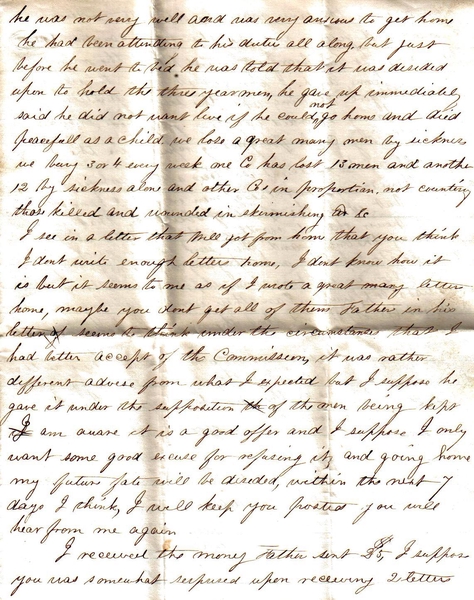 he was not very well and was very anxious to get home
he had been attending to his duties all along but just
before he went to bed he was told that it was desided
upon to hold the three year men, he gave up immediately
said he did not want live if he could not go home and died
peacefull as a child. we lose a great many men by sickness
we bury 3 or 4 every week one Co has lost 13 men and another
12 by sickness alone and other Co's in proportion. not counting
those killed and wounded in skirmishing &c
I see in a letter that Will got from home that you think
I dont write enough letters home, I dont know how it
is but it seems to me as if I wrote a great many letters
home, maybe you dont get all of them Father in his
letter seems to think under the circumstances that I
had better accept of the Commission, it was rather
different advise from what I expected but I suppose he
gave it under the supposition th of the men being kept
I am aware it is a good offer and I suppose I only
want some good excuse for refusing it, and going home
my future fate will be desided, within the next 7
days I think, I will keep you posted you will
hear from me again
I received the money Father sent $5, I suppose
you was somewhat serpused upon receiving 2 letters